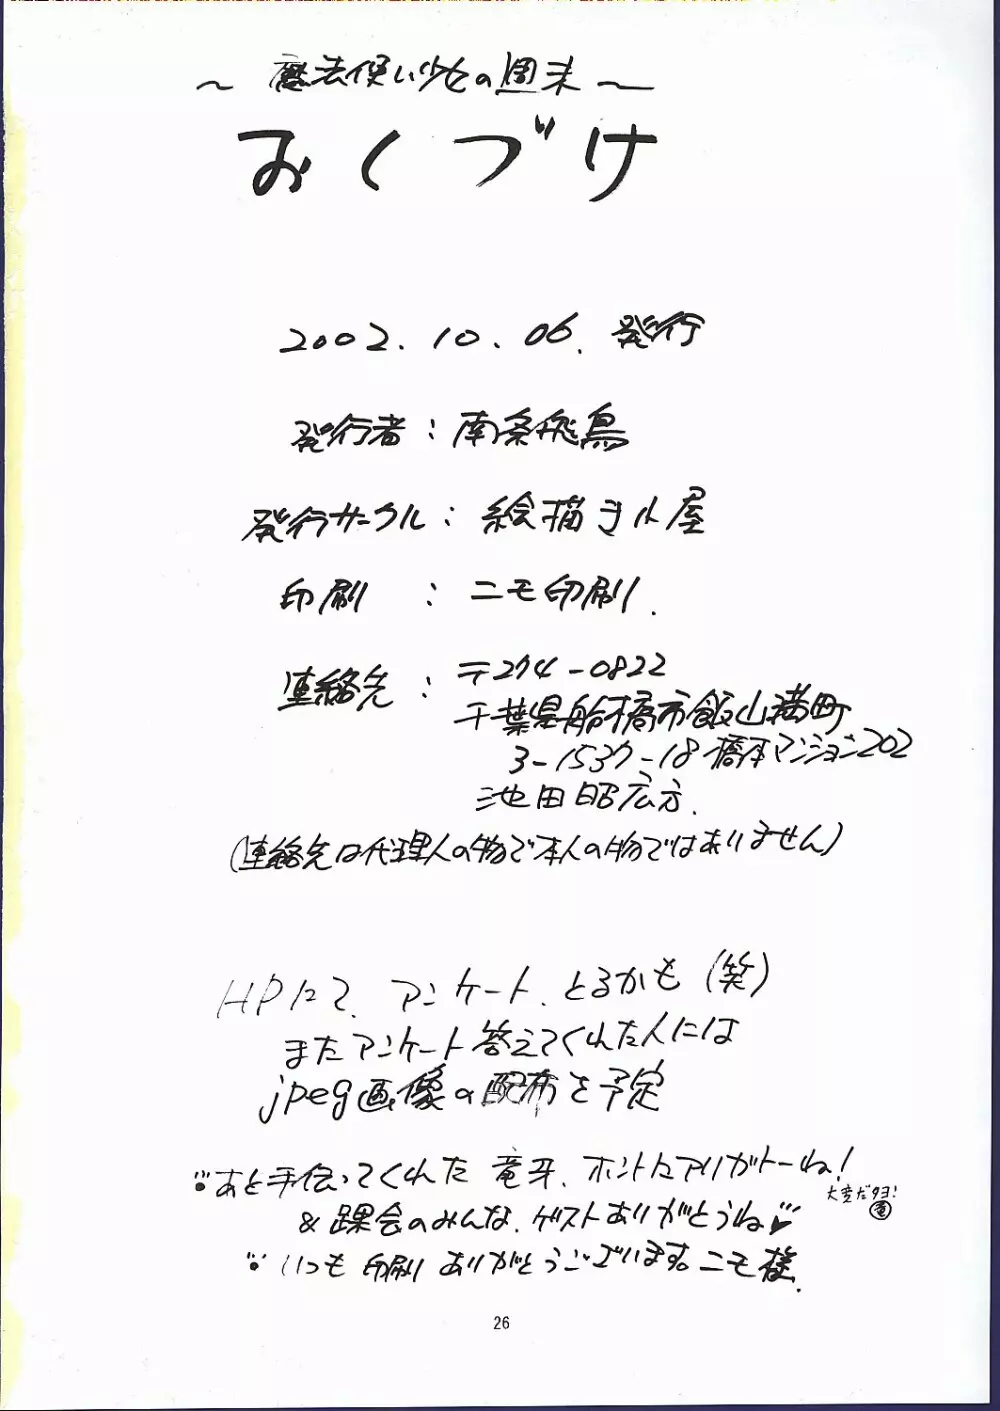 ～魔法使い少女の週末～
おくづけ
2002.10.06.発行
発行者：南条飛鳥
発行サークル：絵描き小屋
印刷：ニモ印刷.
連絡先：〒274-0822
千葉県船橋市飯山満町
3-1537-18橋本マンション202
池田昭広方.
(連絡先は代理人の物で本人の物ではありません)
HPにて、アンケート、とるかも(笑)
またアンケート答えてくれた人には
jpeg画像の配布を予定
あと手伝ってくれた竜牙、ホントにアリガトーね!
大変だタヨ!
竜
&踝会のみんな、ゲストありがとうね♥
いつも印刷ありがとうございます。ニモ様.
26